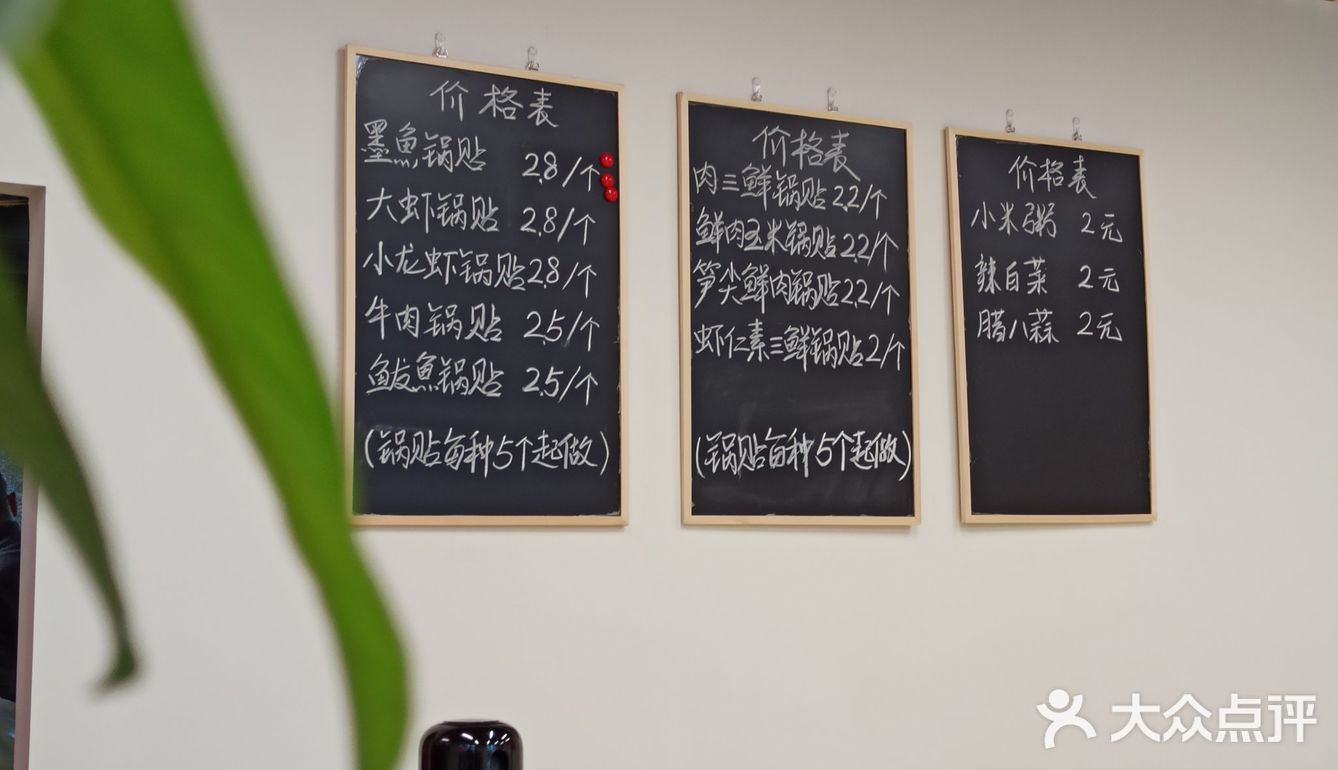 价格表
墨魚锅贴 2.8/个
大虾锅贴 2.8/个
小龙虾锅贴 2.8/个
牛肉锅贴 2.5/个
鲅魚锅贴 2.5/个
(锅贴每种5个起做)
价格表
肉三鲜锅贴 2.2/个
鲜肉玉米锅贴 2.2/个
笋尖鲜肉锅贴 2.2/个
虾仁素三鲜锅贴 2/个
(锅贴每种5个起做)
价格表
小米粥 2元
辣白菜 2元
腊八蒜 2元
大众点评